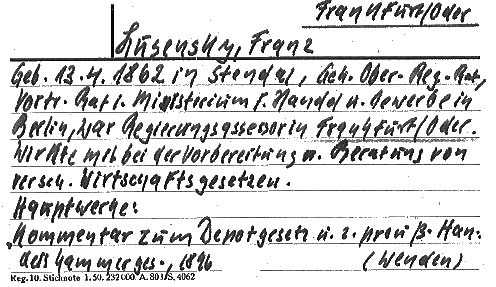 Frankfurt/Oder
Lusensky, Franz
Geb. 13.4.1862 in Stendal, Geh. Ober-Reg.-Rat,
Vortr. Rat i. Ministerium f. Handel u. Gewerbe in
Berlin, war Regierungsassessor in Frankfurt/Oder.
Wirkte mit bei der Vorbereitung u. Beratung von
versch. Wirtschaftsgesetzen.
Hauptwerke:
"Kommentar zum Depotgesetz u. z. preuß. Han-
delskammerges., 1896 (Wenden)
Reg. 10. Stichnote 1. 50. 232000. A. 803/S. 4062